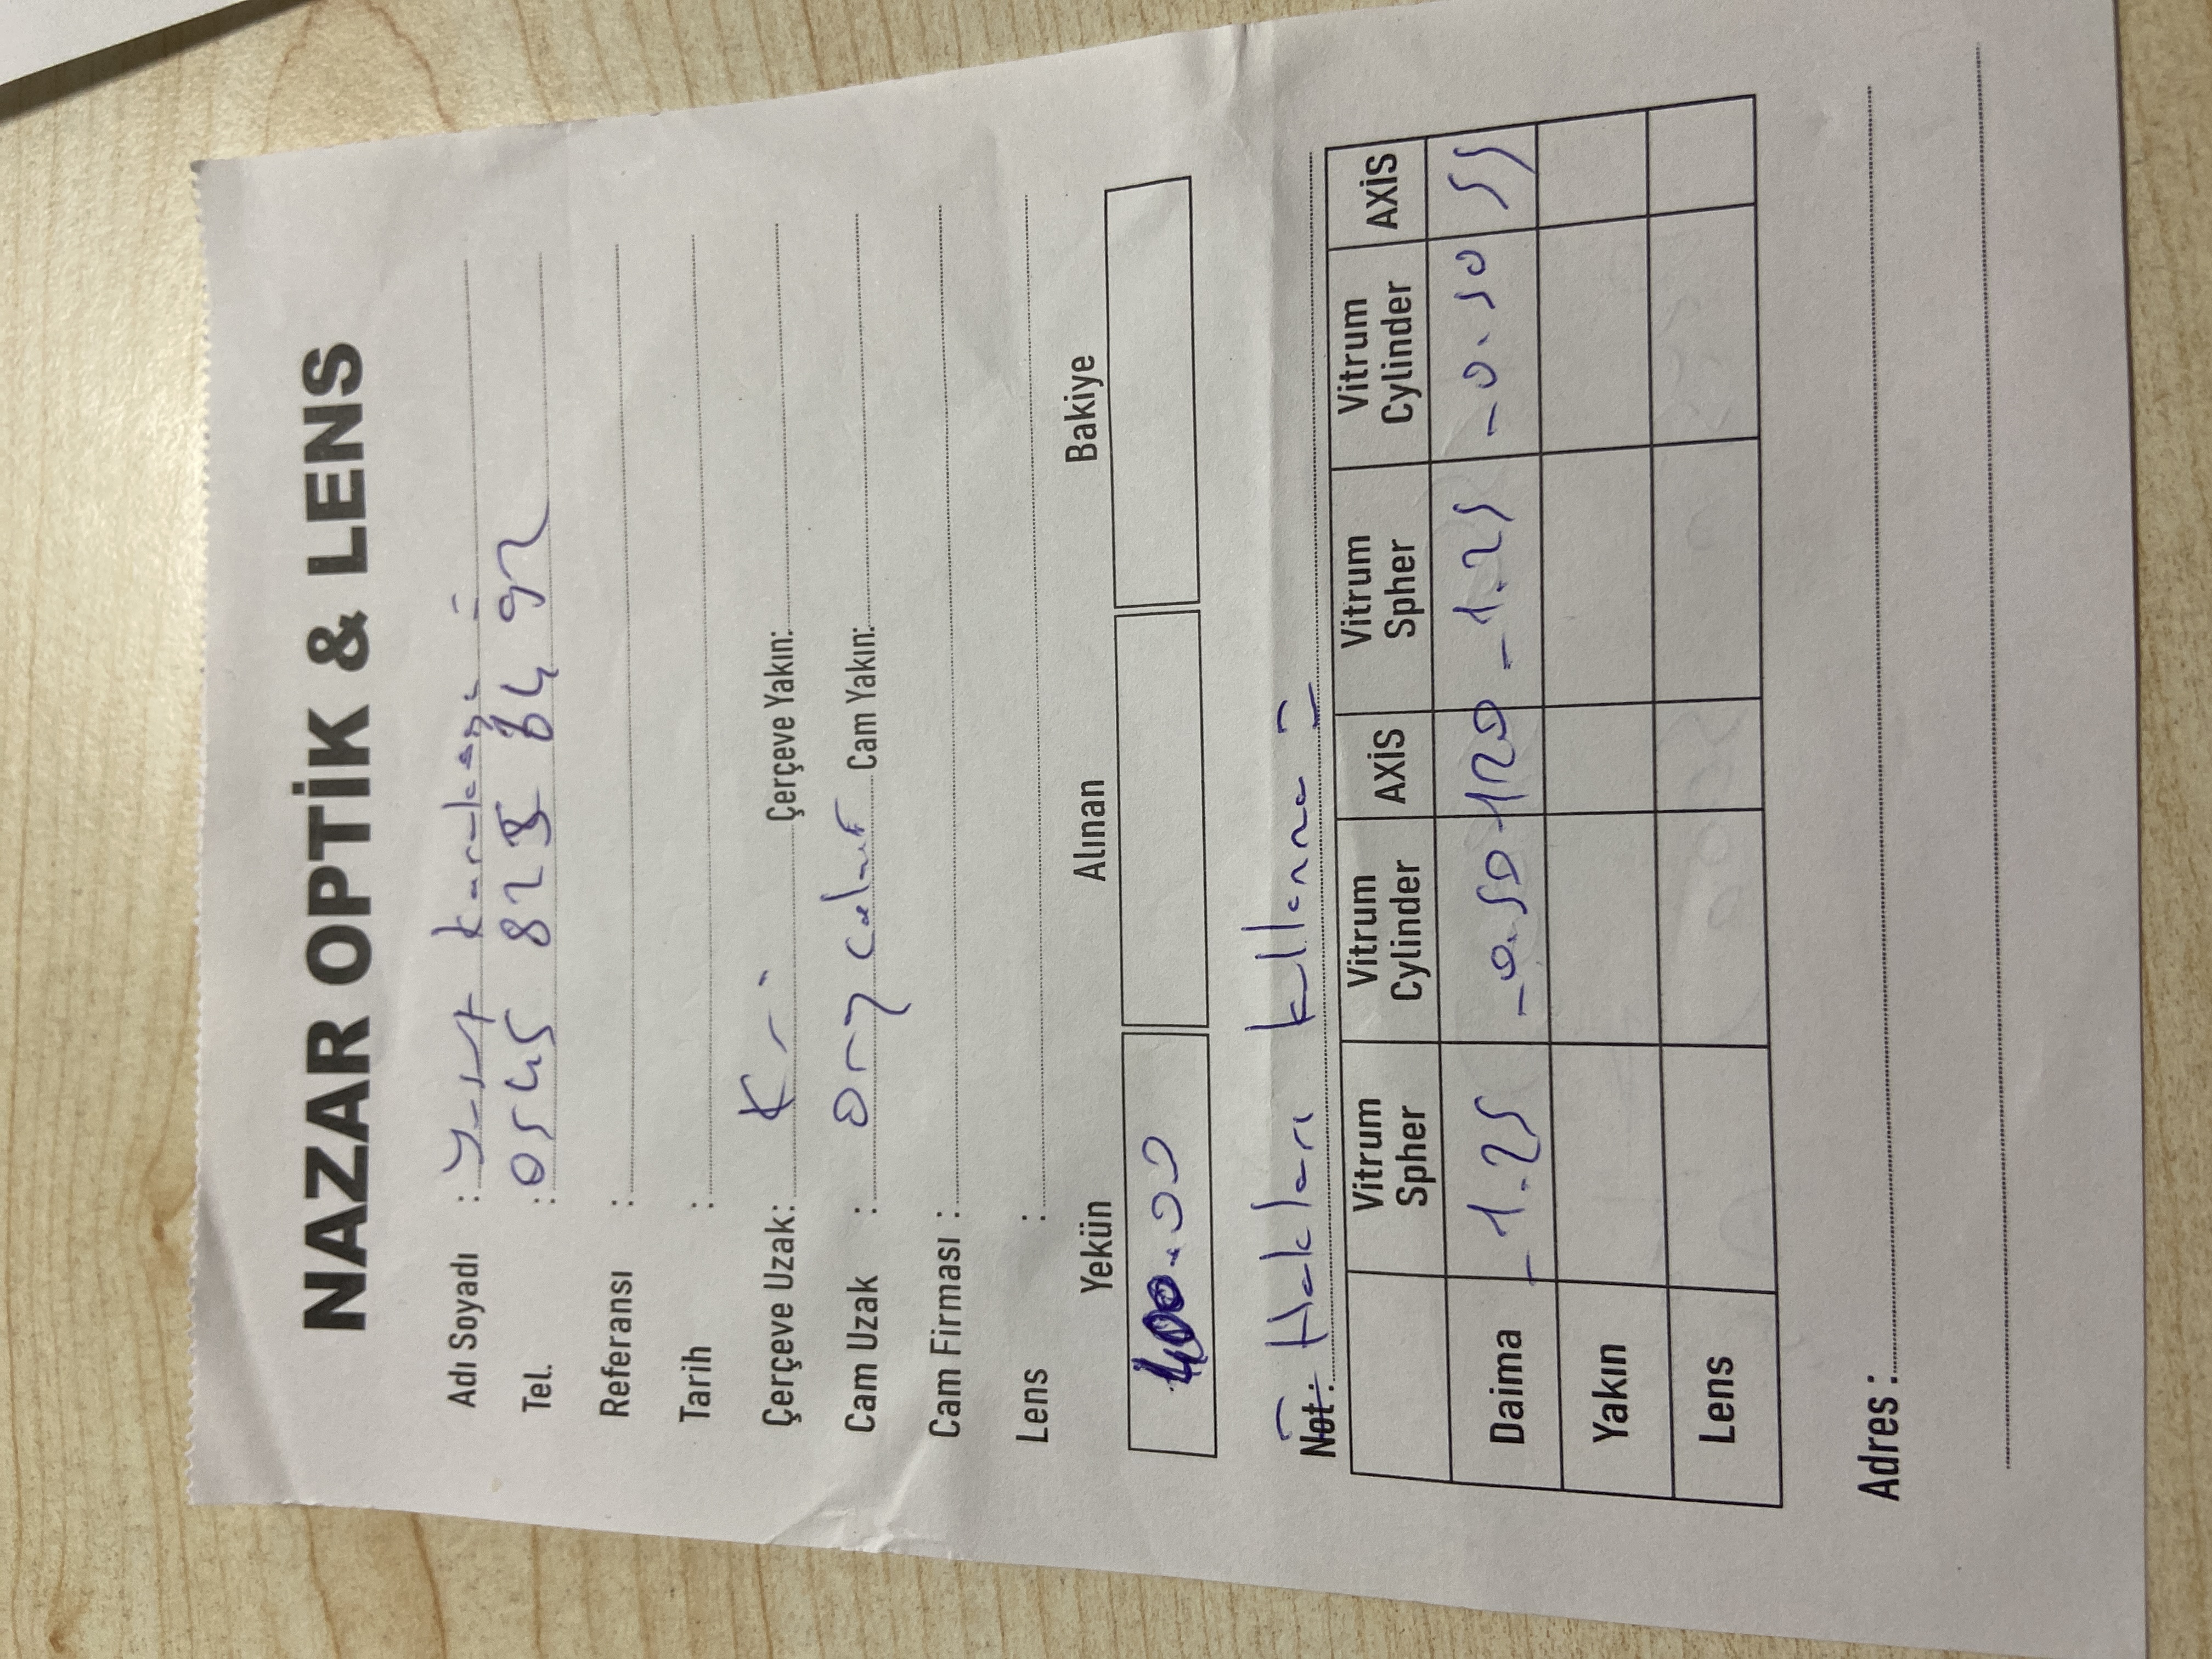 NAZAR OPTİK & LENS
Adı Soyadı : Yusuf Karakaya
Tel. : 0545 825 64 92
Referansı :
Tarih :
Çerçeve Uzak: Çerçeve Yakın:
Cam Uzak : Cam Yakın:
Cam Firması :
Lens :
Yekün Alınan Bakiye
400.00
Not: Hakları kullanma
Vitrum Spher Vitrum Cylinder AXİS Vitrum Spher Vitrum Cylinder AXİS
Daima -1.25 -0.50 120 -1.25 -0.50 55
Yakın
Lens
Adres :